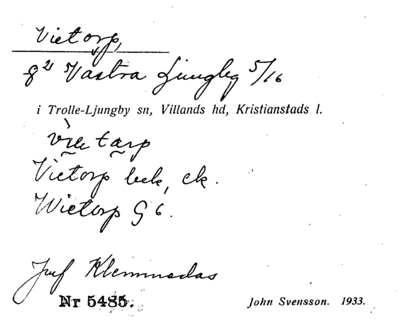 Vietorp,
g² Västra Ljungby 5/16
i Trolle-Ljungby sn, Villands hd, Kristianstads l.
Vietorp bek, ek.
Wietorp G 6.
Nr 5485.
John Svensson. 1933.